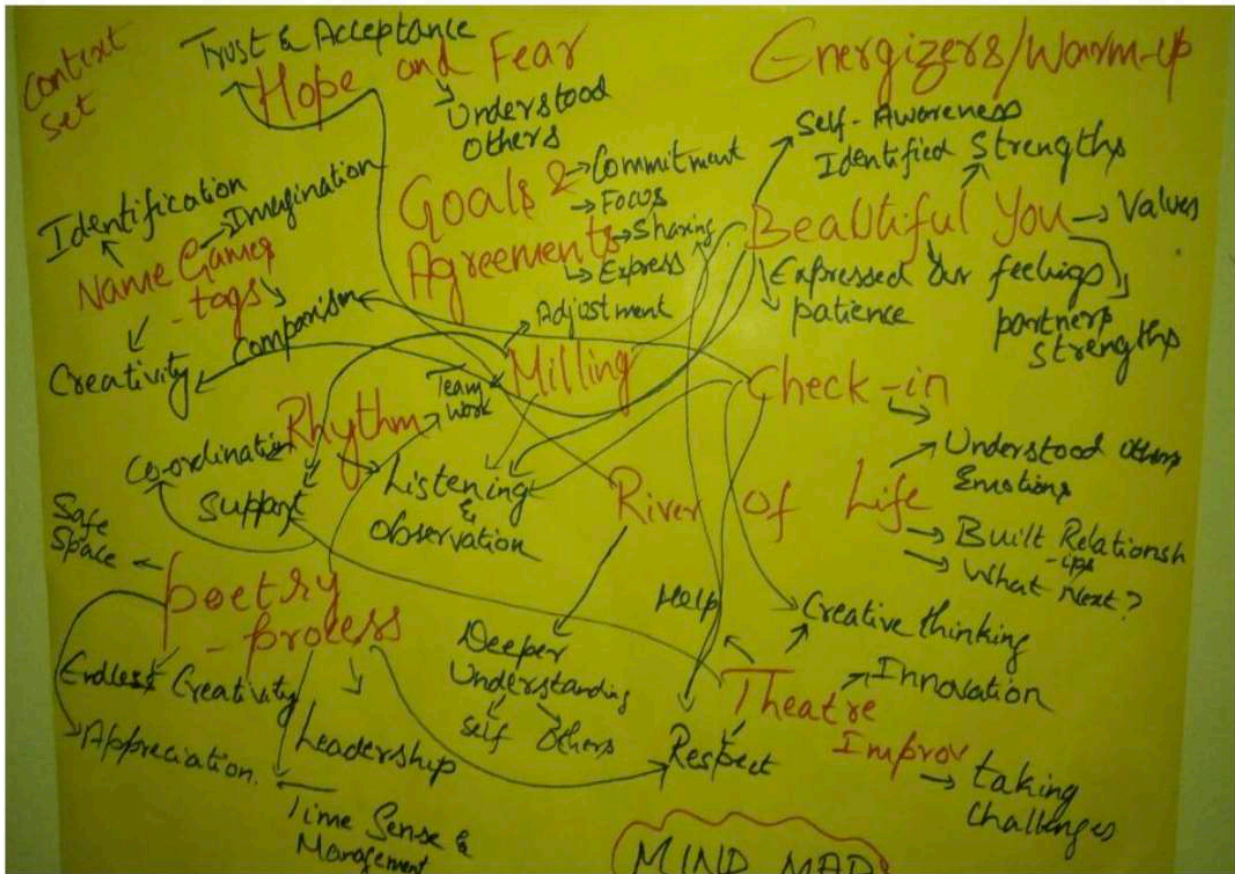 Context
Set
Trust & Acceptance
Hope and Fear
Understood
Others
Energizers/Warm-up
Self-Awareness
Identified Strengths
Identification
Imagination
Name Games
- tags
Comparism
Creativity
Goals &
Agreements
Commitment
Focus
Sharing
Express
Adjustment
Beautiful You
Values
Expressed our feelings
patience
partners
strengths
Milling
Team
work
Check-in
Rhythm
Co-ordination
Support
Listening
&
Observation
River of Life
Understood others
Emotions
Built Relationsh
-ips
What Next?
Safe
Space
Poetry
- process
Endless Creativity
Appreciation.
Leadership
Time Sense &
Management
Deeper
Understanding
Self Others
Help
Creative thinking
Theatre
Improv
Innovation
Respect
taking
Challenges
MIND MAP